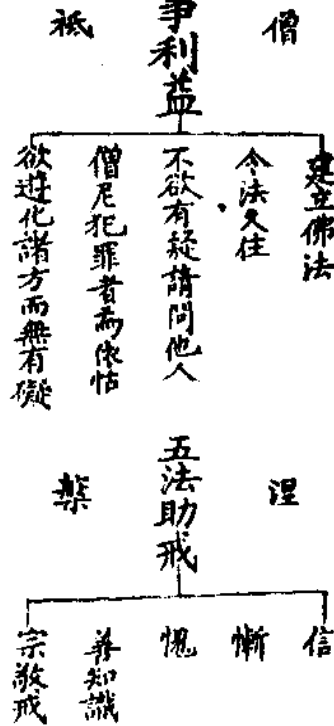 僧祇
事利益
建立佛法
令法久住
不欲有疑請問他人
僧尼犯罪者為依怙
欲遊化諸方而無有礙
涅槃
五法助戒
信
慚
愧
善知識
宗敬戒